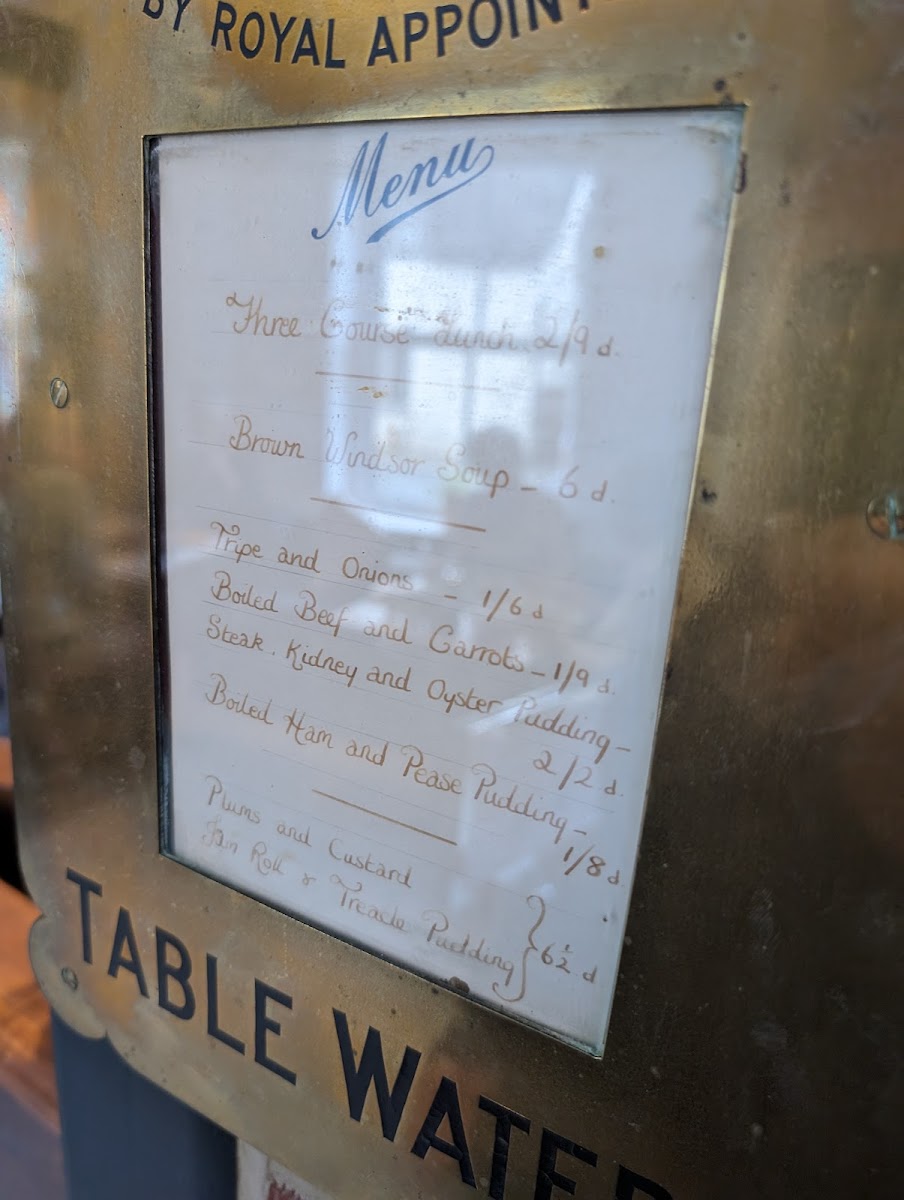 BY ROYAL APPOINT
Menu
Three Course Lunch 2/9 d.
Brown Windsor Soup - 6 d.
Tripe and Onions - 1/6 d
Boiled Beef and Carrots - 1/9 d.
Steak, Kidney and Oyster Pudding -
2/2 d.
Boiled Ham and Pease Pudding -
1/8 d
Plums and Custard
Jam Roll & Treacle Pudding } 6½ d
TABLE WATER